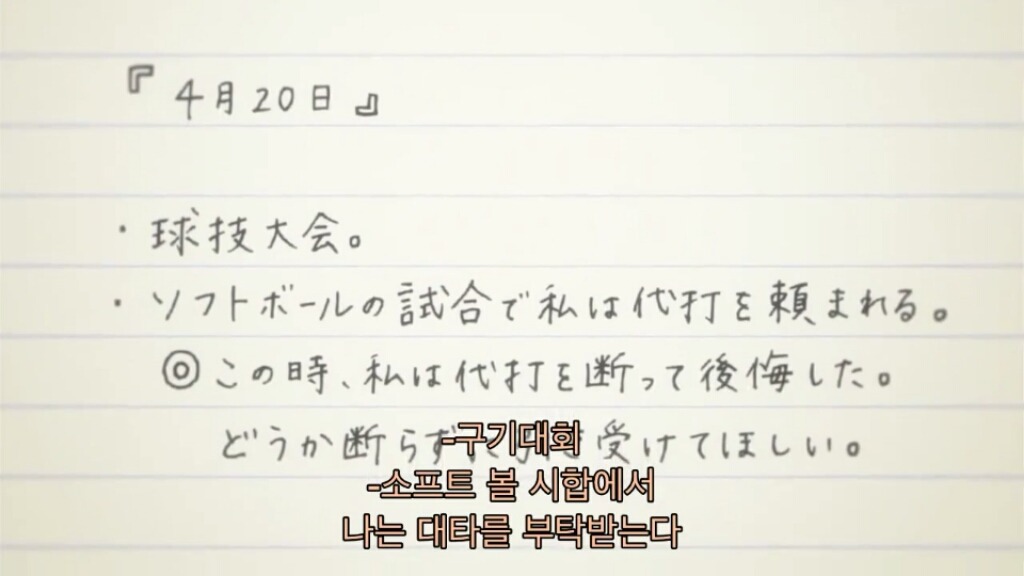 『4月20日』
・球技大会。
・ソフトボールの試合で私は代打を頼まれる。
◎この時、私は代打を断って後悔した。
どうか断らず 受けてほしい。
-구기대회
-소프트 볼 시합에서
나는 대타를 부탁받는다